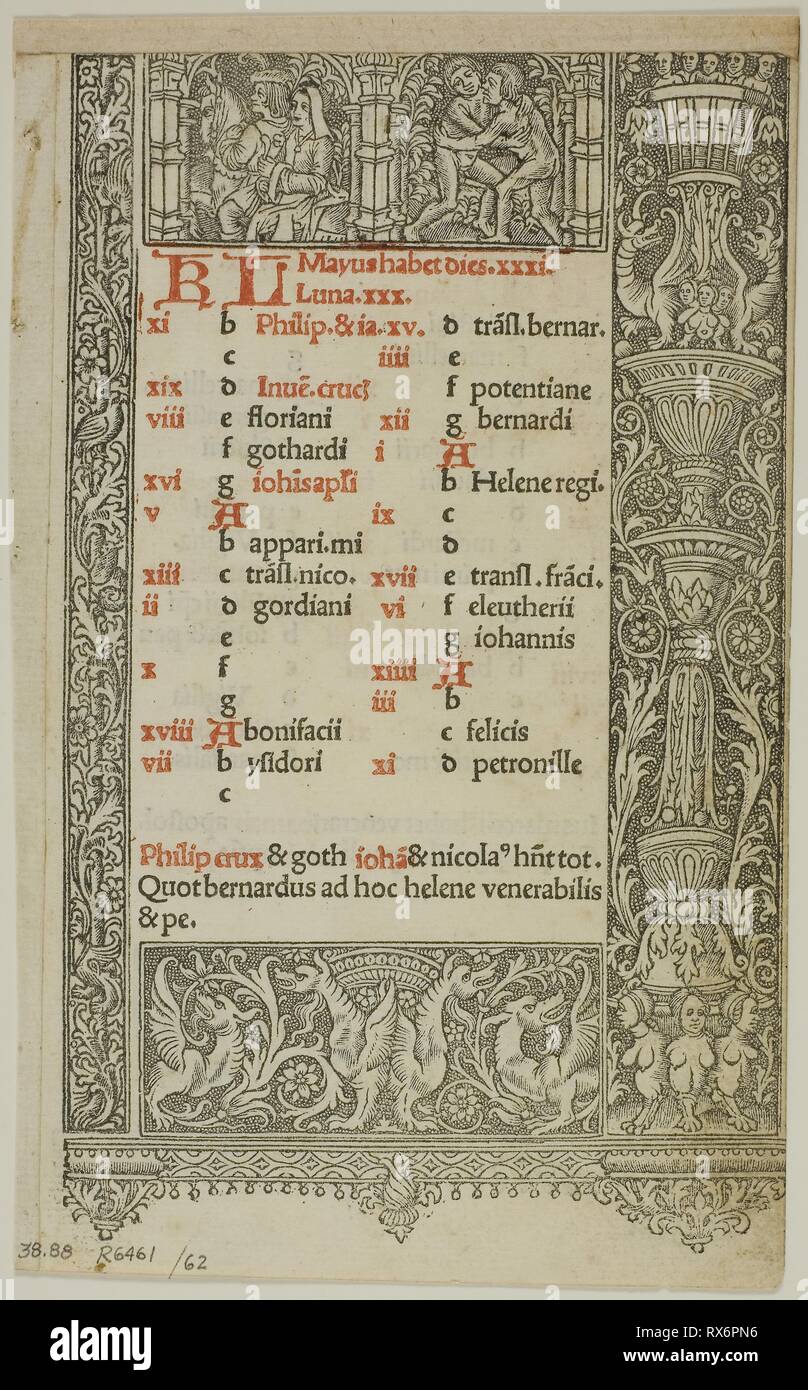 KL Mayus habet dies.xxxi.
Luna.xxx.
xi b Philip.&ia.xv. d trãsl.bernar.
c iiii e
xix d Inuẽ.cruc f potentiane
viii e floriani xii g bernardi
f gothardi i A
xvi g iohis apli b Helene regi.
v A ix c
b appari.mi d
xiii c trãsl.nico. xvii e transl.frãci.
ii d gordiani vi f eleutherii
e g iohannis
x f xiiii A
g iii b
xviii A bonifacii c felicis
vii b ysidori xi d petronille
c
Philip crux & goth iohã & nicolaꝰ hñt tot.
Quot bernardus ad hoc helene venerabilis
& pe.
38.88 R6461 /62
alamy
Image ID: RX6PN6
www.alamy.com